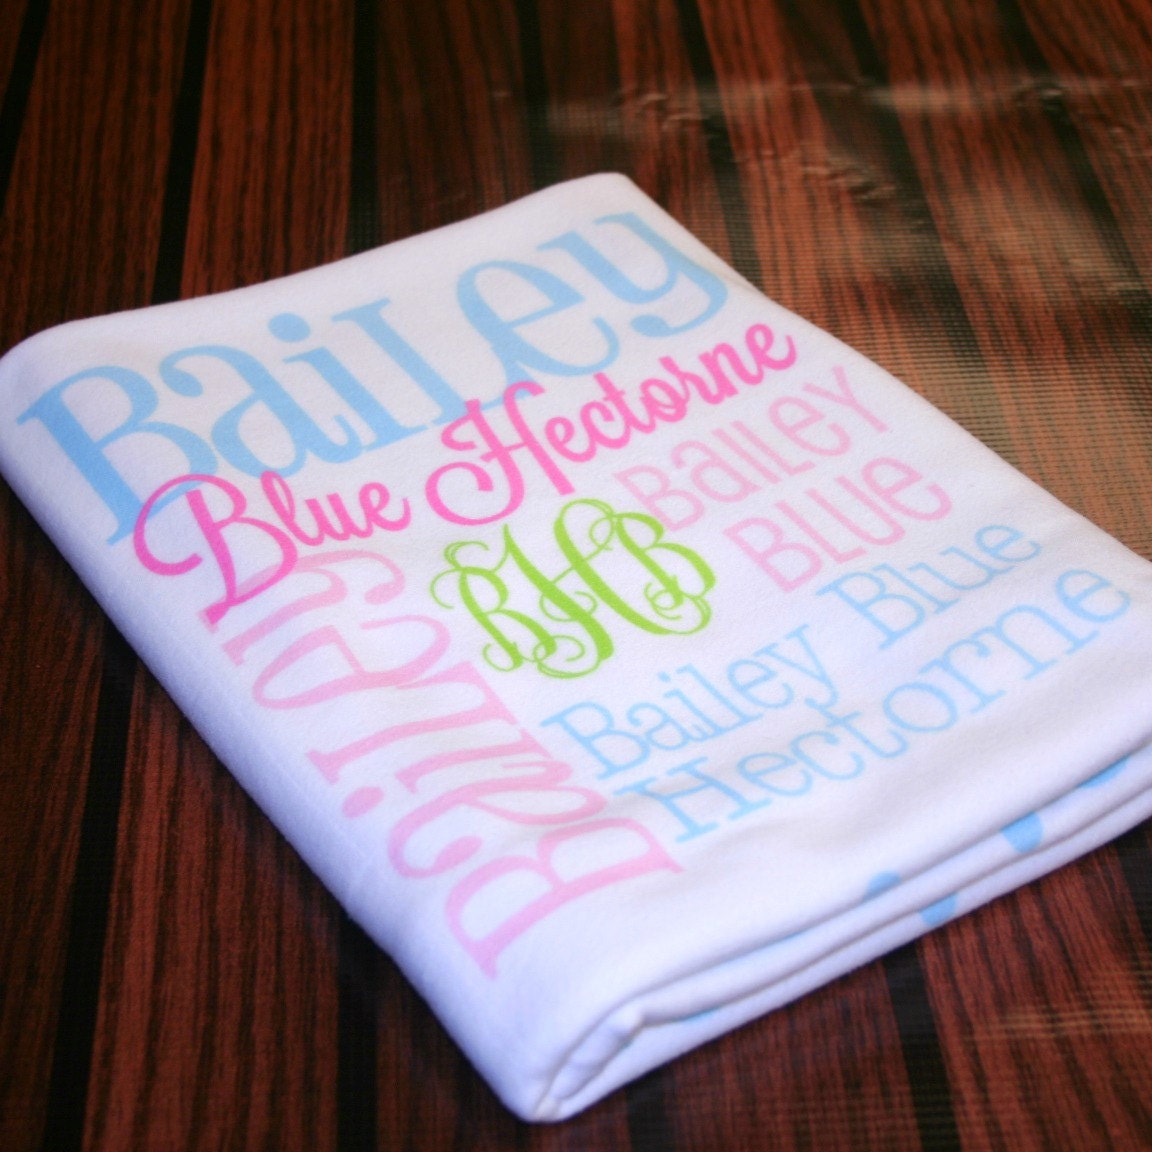 BaiLey
Blue Hectorne
BaiLEY
BLUE
BHB
Bailey
Bailey Blue
Hectorne